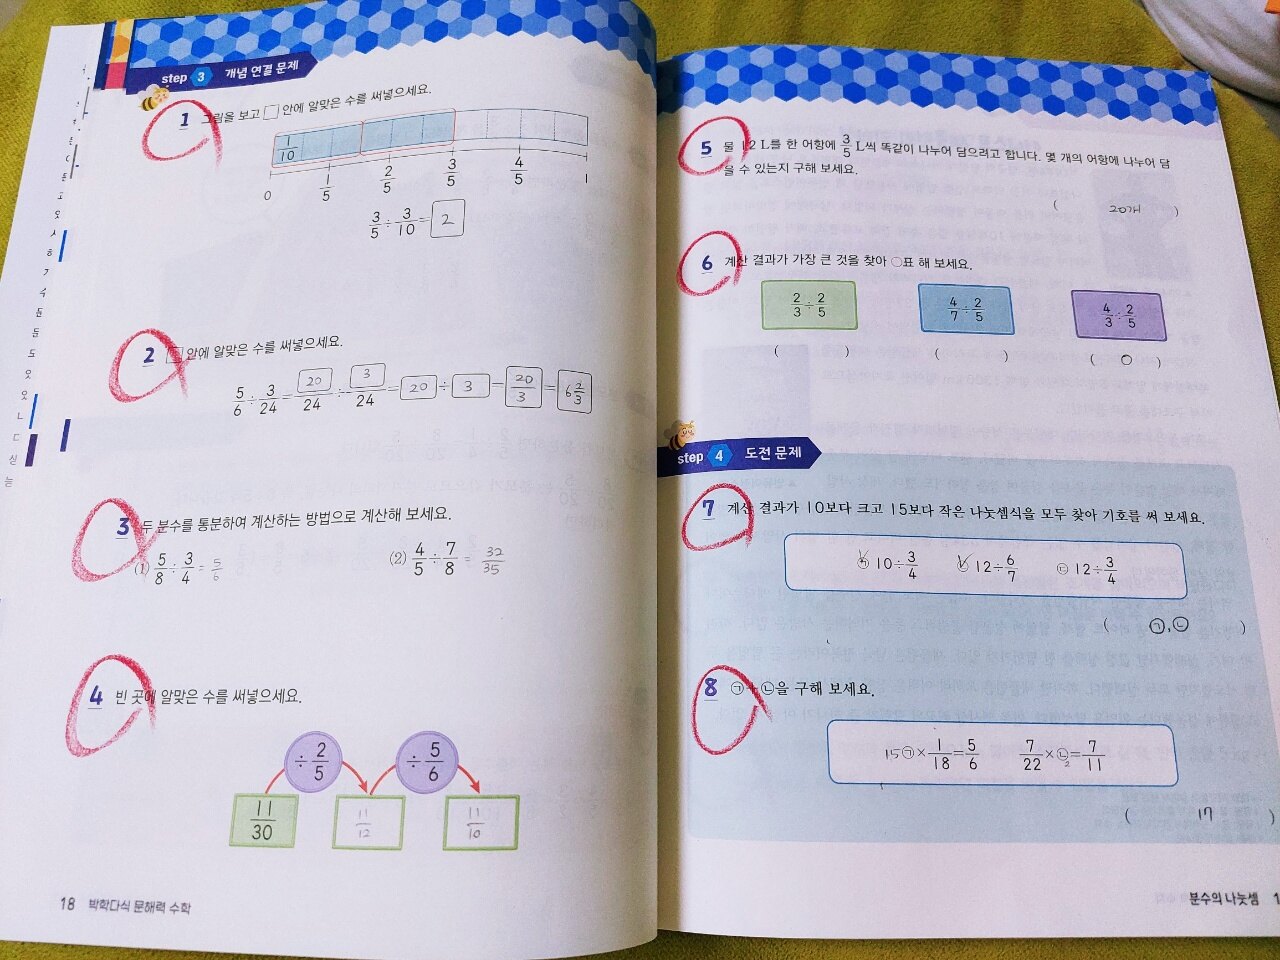 step 3 개념 연결 문제
1 그림을 보고 □ 안에 알맞은 수를 써넣으세요.
1/10
0 1/5 2/5 3/5 4/5 1
3/5 ÷ 3/10 = 2
2 □ 안에 알맞은 수를 써넣으세요.
5/6 ÷ 3/24 = 20/24 ÷ 3/24 = 20 ÷ 3 = 20/3 = 6 2/3
3 두 분수를 통분하여 계산하는 방법으로 계산해 보세요.
(1) 5/8 ÷ 3/4 = 5/6 (2) 4/5 ÷ 7/8 = 32/35
4 빈 곳에 알맞은 수를 써넣으세요.
÷ 2/5 ÷ 5/6
11/30 11/12 11/10
18 박학다식 문해력 수학
5 물 12 L를 한 어항에 3/5 L씩 똑같이 나누어 담으려고 합니다. 몇 개의 어항에 나누어 담
을 수 있는지 구해 보세요.
( 20개 )
6 계산 결과가 가장 큰 것을 찾아 ○표 해 보세요.
2/3 ÷ 2/5 4/7 ÷ 2/5 4/3 ÷ 2/5
( ) ( ) ( ○ )
step 4 도전 문제
7 계산 결과가 10보다 크고 15보다 작은 나눗셈식을 모두 찾아 기호를 써 보세요.
㉠ 10 ÷ 3/4 ㉡ 12 ÷ 6/7 ㉢ 12 ÷ 3/4
( ㉠, ㉡ )
8 ㉠+㉡을 구해 보세요.
15 ㉠ × 1/18 = 5/6 7/22 × ㉡ 2 = 7/11
( 17 )
분수의 나눗셈 1